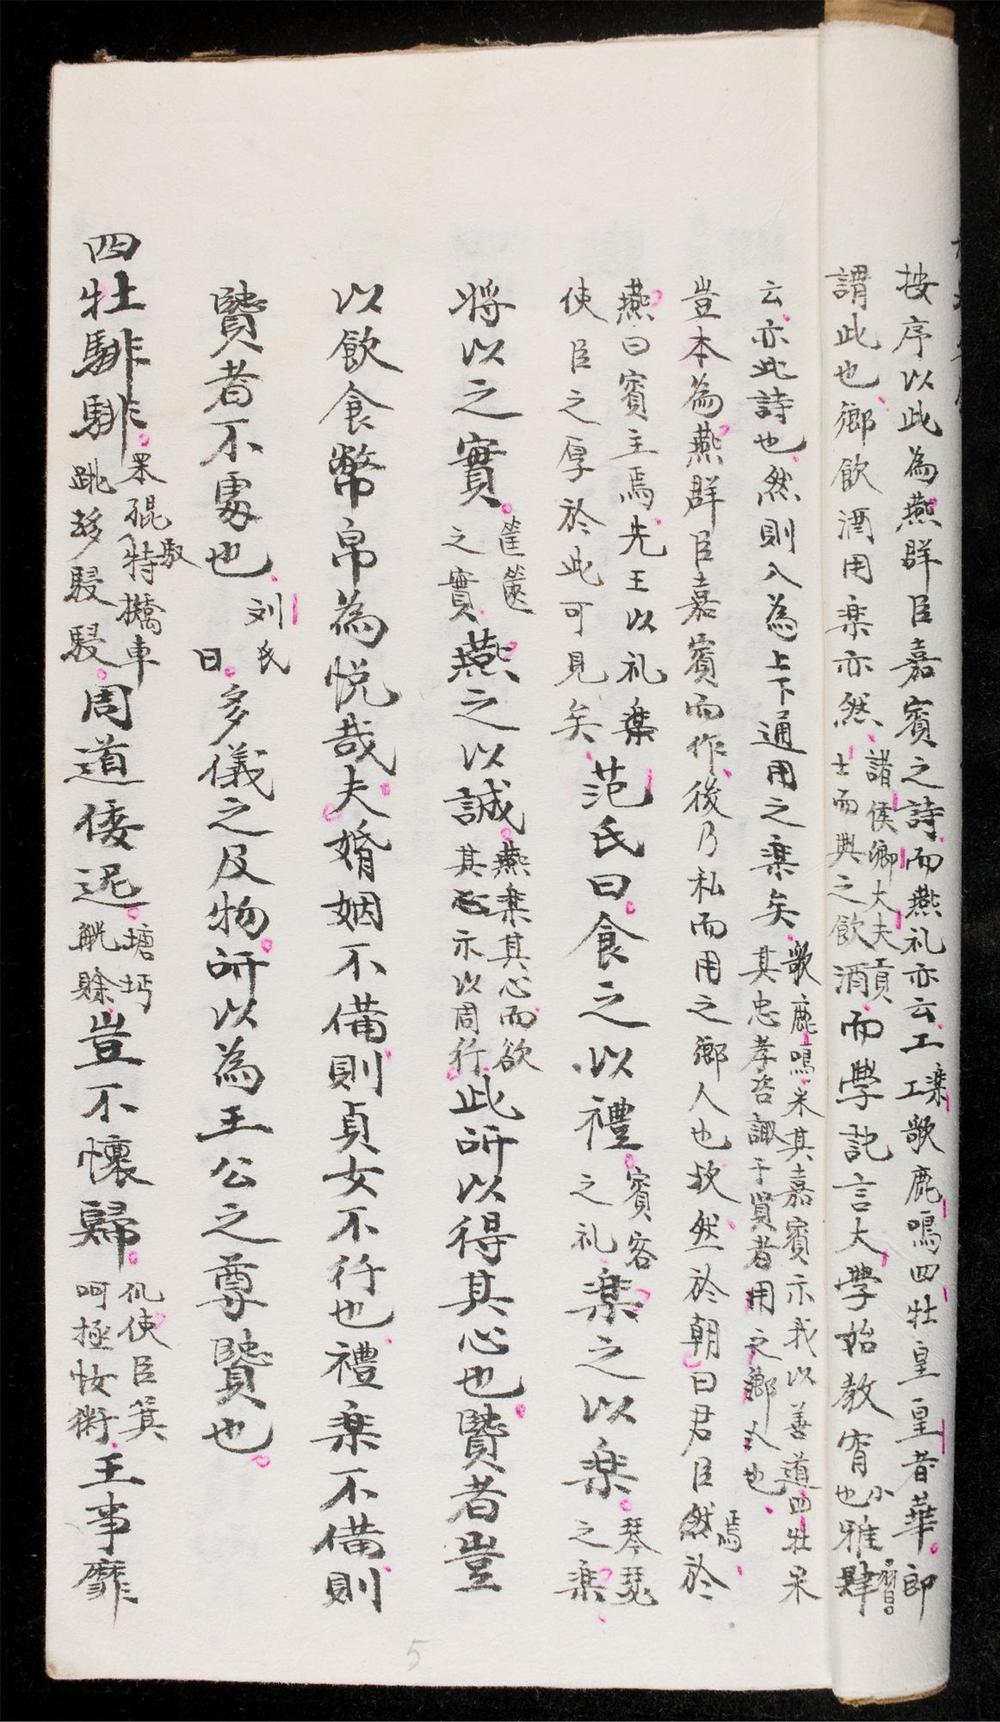 按序以此為燕群臣嘉賓之詩而燕礼亦云工樂工歌鹿鳴四牡皇皇者華即
謂此也鄉飲酒用楽亦然諸侯鄉大夫貢士而與之飲酒而學記言大學始教宵小也雅肄習
云亦此詩也然則入為上下通用之楽矣歌鹿鳴采其嘉賓示我以善道四牡采其忠孝咨諏于賢者用之鄉人也
豈本為燕群臣嘉賓而作後乃私而用之鄉人也故然於朝曰君臣焉然於
燕曰賓主焉先王以礼楽
使臣之厚於此可見矣范氏曰食之以禮賓客之礼楽之以楽琴瑟之楽
將以之實筐篚之實燕之以誠燕楽其心而欲其示以周行此所以得其心也贒者豈
以飲食幣帛為悦哉夫婚姻不備則貞女不行也禮楽不備則
贒者不䖏也刘氏曰多儀之及物所以為王公之尊贒也
四牡騑騑馭特轎車跳䟻騣騣周道倭迟塘圬觥賖豈不懷歸仉使臣箕呵極怓衚王事靡
5